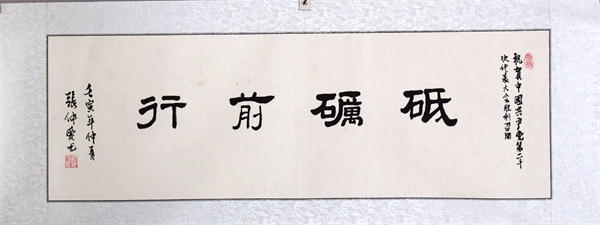 祝賀中國共产党第二十
次代表大会胜利召開
砥礪前行
壬寅年仲夏
張仲